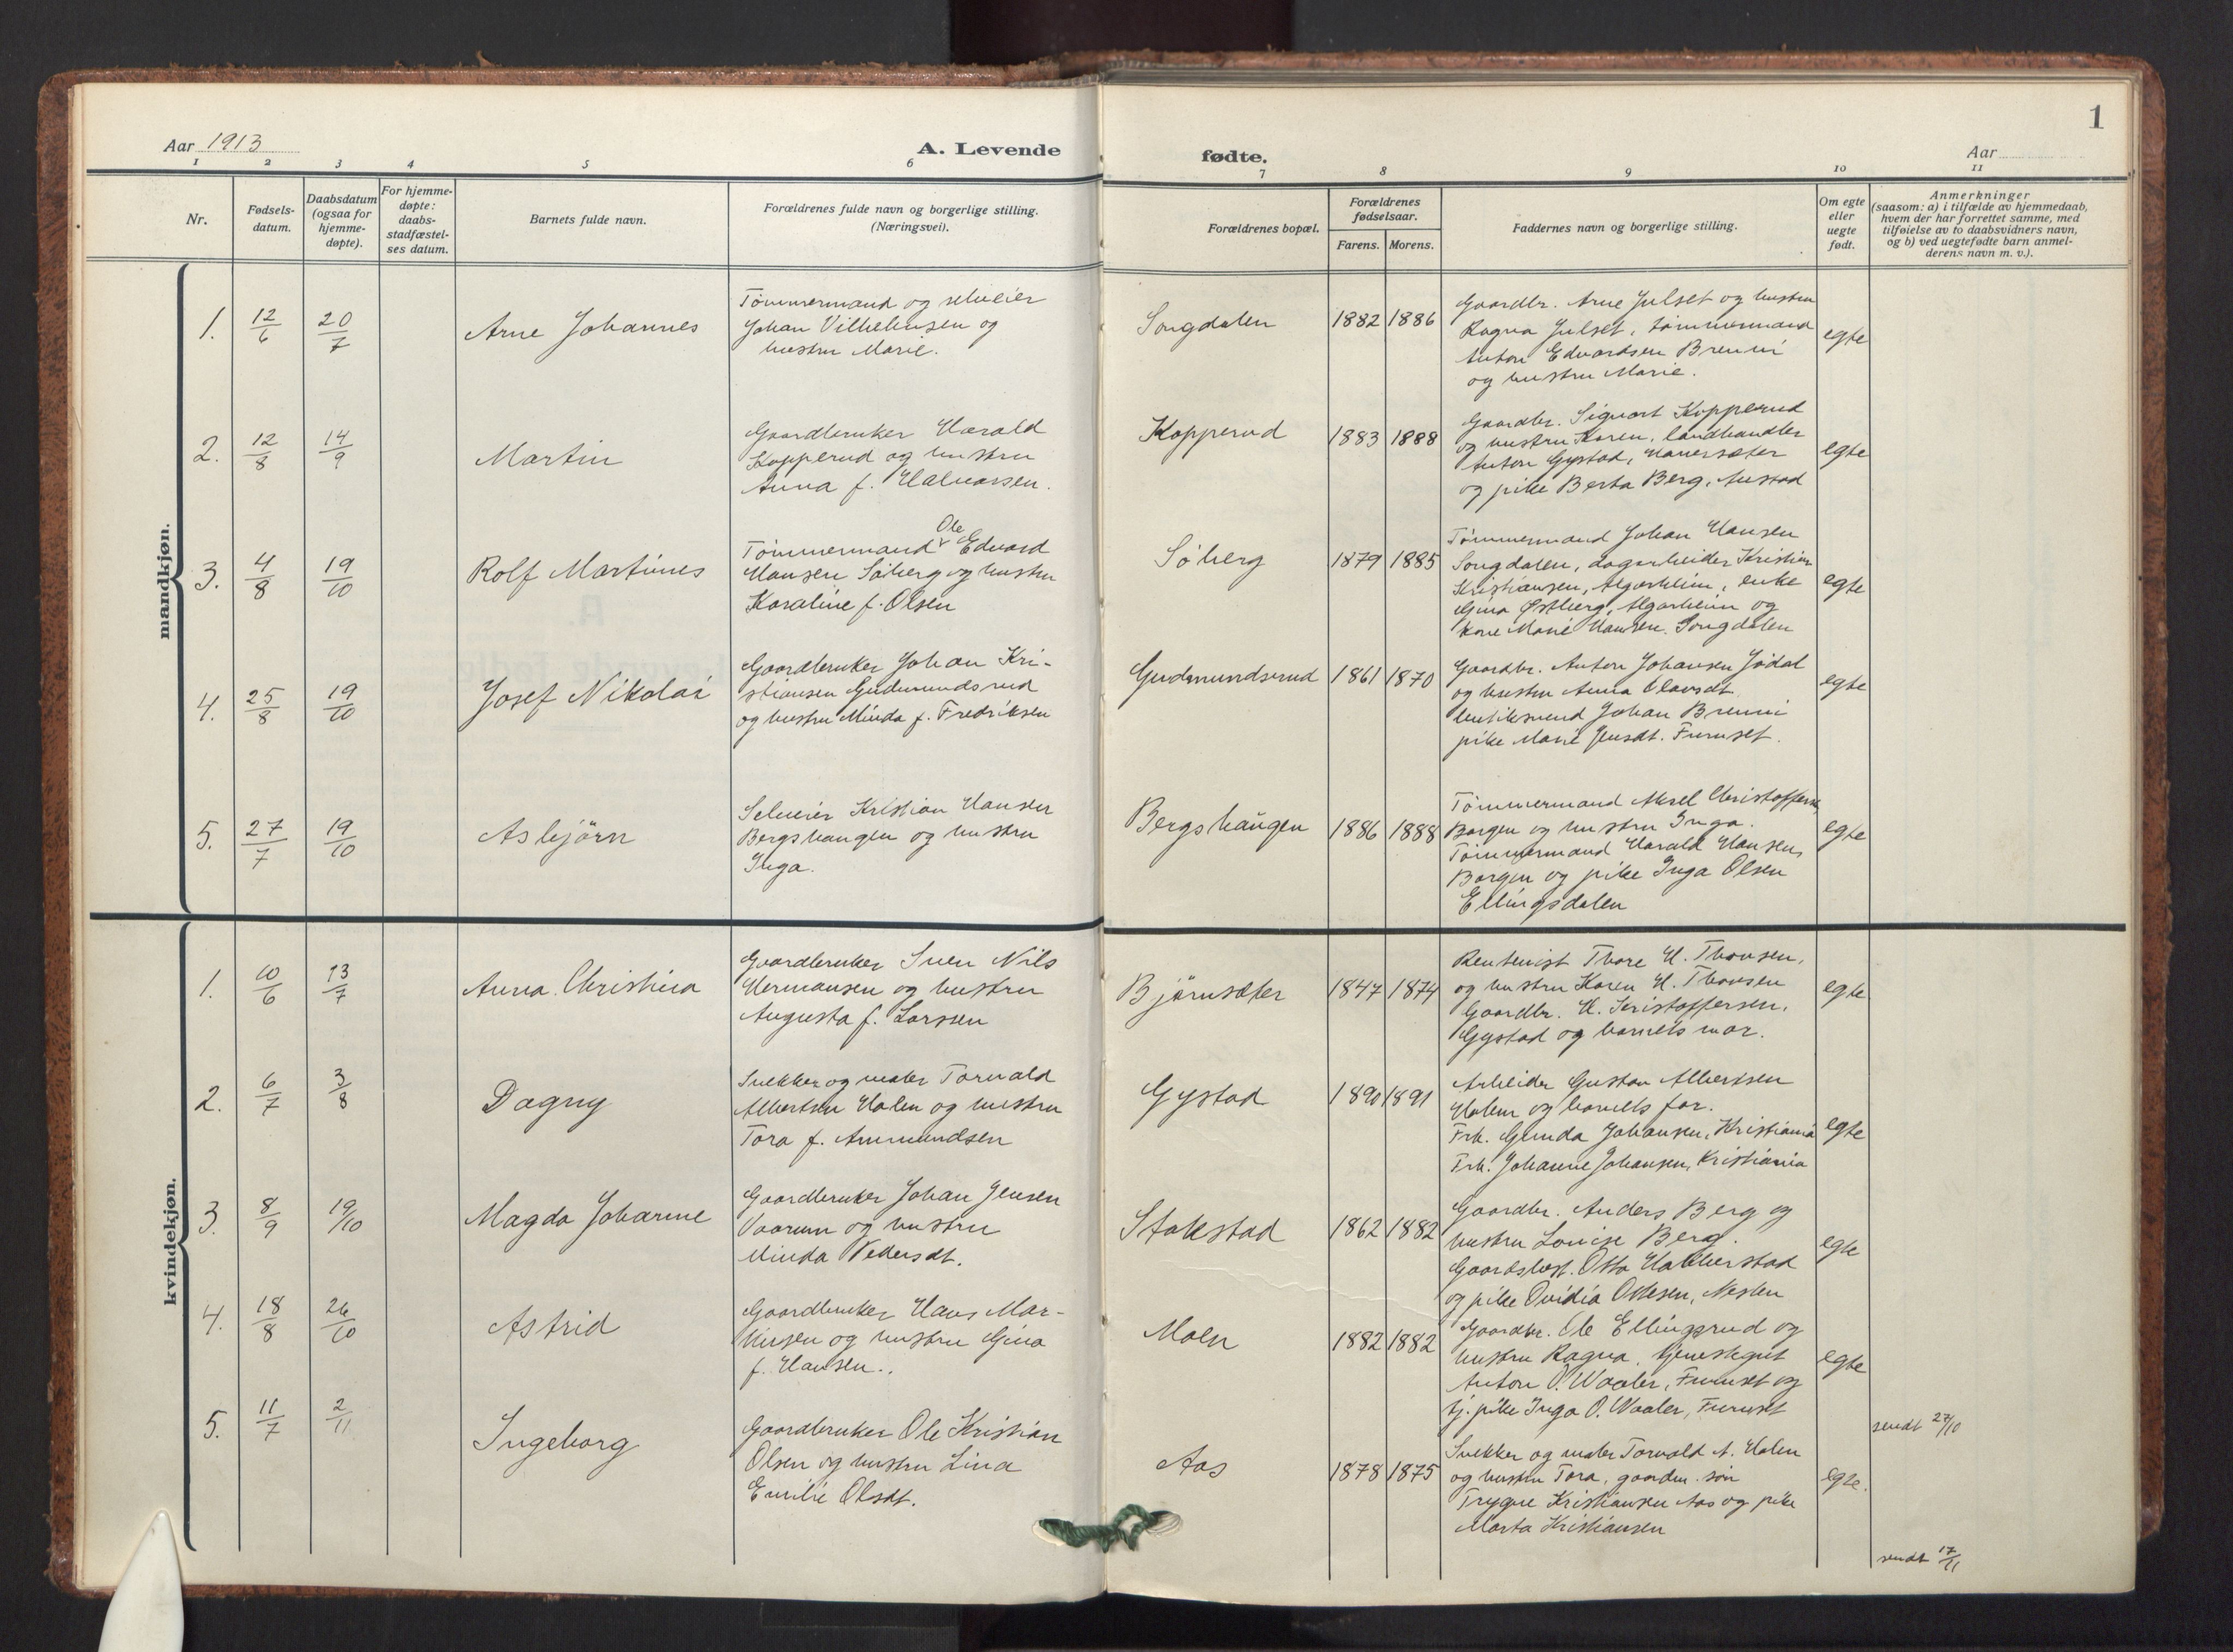 1
Aar 1913
A. Levende
fødte.
Aar
1 2 3 4 5 6
7 8 9 10 11
Nr.
Fødsels-
datum.
Daabsdatum
(ogsaa for
hjemme-
døpte).
For hjemme-
døpte:
daabs-
stadfæstel-
ses datum.
Barnets fulde navn.
Forældrenes fulde navn og borgerlige stilling.
(Næringsvei).
Forældrenes bopæl.
Forældrenes
fødselsaar.
Farens. Morens.
Faddernes navn og borgerlige stilling.
Om egte
eller
uegte
født.
Anmerkninger
(saasom: a) i tilfælde av hjemmedaab,
hvem der har forrettet samme, med
tilføielse av to daabsvidners navn,
og b) ved uegtefødte barn anmel-
derens navn m. v.).
mandkjøn.
1. 12/6 20/7 Arne Johannes
Tömmermand og selveier
Johan Vilhelmsen og
hustru Marie.
Songdalen 1882 1886
Gaardbr. Arne Julset og hustru
Ragna Julset, tömmermand
Anton Edvardsen Brenni
og hustru Marie.
egte
2. 12/8 14/9 Martin
Gaardbruker Harald
Kopperud og hustru
Anna f. Halvorsen.
Kopperud 1883 1888
Gaardbr. Sigvart Kopperud
og hustru Karen, landhandler
Anton Gystad,
og pike Berta Berg, Austad
egte
3. 4/8 19/10 Rolf Martinus
Ole
Tömmermand Edvard
Hansen Söberg og hustru
Karoline f. Olsen
Söberg 1879 1885
Tömmermand Johan Hansen
Songdalen, dagarbeider Kristian
Kristiansen, Algarheim, enke
Gina Østberg, Algarheim og
kone Marie Hansen. Songdalen
egte
4. 25/8 19/10 Josef Nikolai
Gaardbruker Johan Kri-
stiansen Gudmundsrud
og hustru Minda f. Fredriksen
Gudmundsrud 1861 1870
Gaardbr. Anton Johansen Jödal
og hustru Anna Olavsdt.
butiksvend Johan Brenni
pike Marie Jensdt. Furuset.
egte
5. 27/7 19/10 Asbjörn
Selveier Kristian Hansen
Bergshaugen og hustru
Inga.
Bergshaugen 1886 1888
Tömmermand Aksel Christoffersen
Borgen og hustru Inga.
Tömmermand Harald Hansen,
Borgen og pike Inga Olsen
Ellingsdalen
egte
kvindekjøn.
1. 10/6 13/7 Anna Christina
Gaardbruker Sven Nils
Hermansen og hustru
Augusta f. Larsen
Björnsæter 1847 1874
Rentenist Thore H. Thorsen,
og hustru Karen H. Thorsen
Gaardbr. H. Kristoffersen,
Gystad og barnets mor.
egte
2. 6/7 3/8 Dagny
Snekker og maler Torvald
Albertsen Holen og hustru
Tora f. Ammundsen
Gystad 1890 1891
Arbeider Gustav Albertsen
Holen og barnets far.
Frk. Gunda Johansen, Kristiania
Frk. Johanne Johansen, Kristiania
egte
3. 8/9 19/10 Magda Johanne
Gaardbruker Johan Jensen
Vaarum og hustru
Minda Pedersdt.
Stakstad 1862 1882
Gaardbr. Anders Berg og
hustru Louise Berg.
Gaardsbest. Otto Habberstad
og pike Ovidia Ottesen, Nesten
egte
4. 18/8 26/10 Astrid
Gaardbruker Hans Mar-
tinsen og hustru Gina
f. Hansen.
Moen 1882 1882
Gaardbr. Ole Ellingsrud og
hustru Ragna, tjenestegut
Anton O. Waaler, Furuset og
tj. pike Inga O. Waaler, Furuset
egte
sendt 27/10
5. 11/7 2/11 Ingeborg
Gaardbruker Ole Kristian
Olsen og hustru Lina
Emilie Olsdt.
Aas 1878 1875
Snekker og maler Torvald A. Holen
og hustru Tora, gaardm. sön
Trygve Kristiansen Aas og pike
Marta Kristiansen
egte.
sendt 17/11